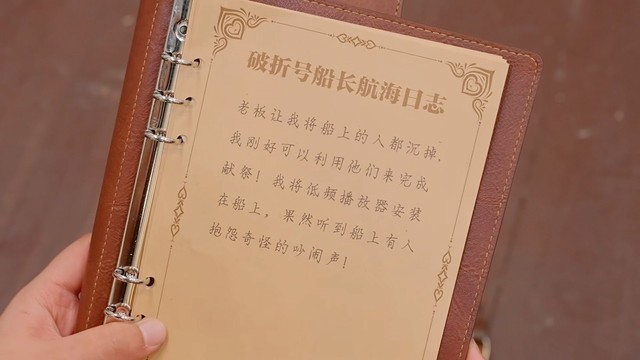 破折号船长航海日志
老板让我将船上的人都沉掉,
我刚好可以利用他们来完成
献祭！我将低频播放器安装
在船上，果然听到船上有人
抱怨奇怪的吵闹声！